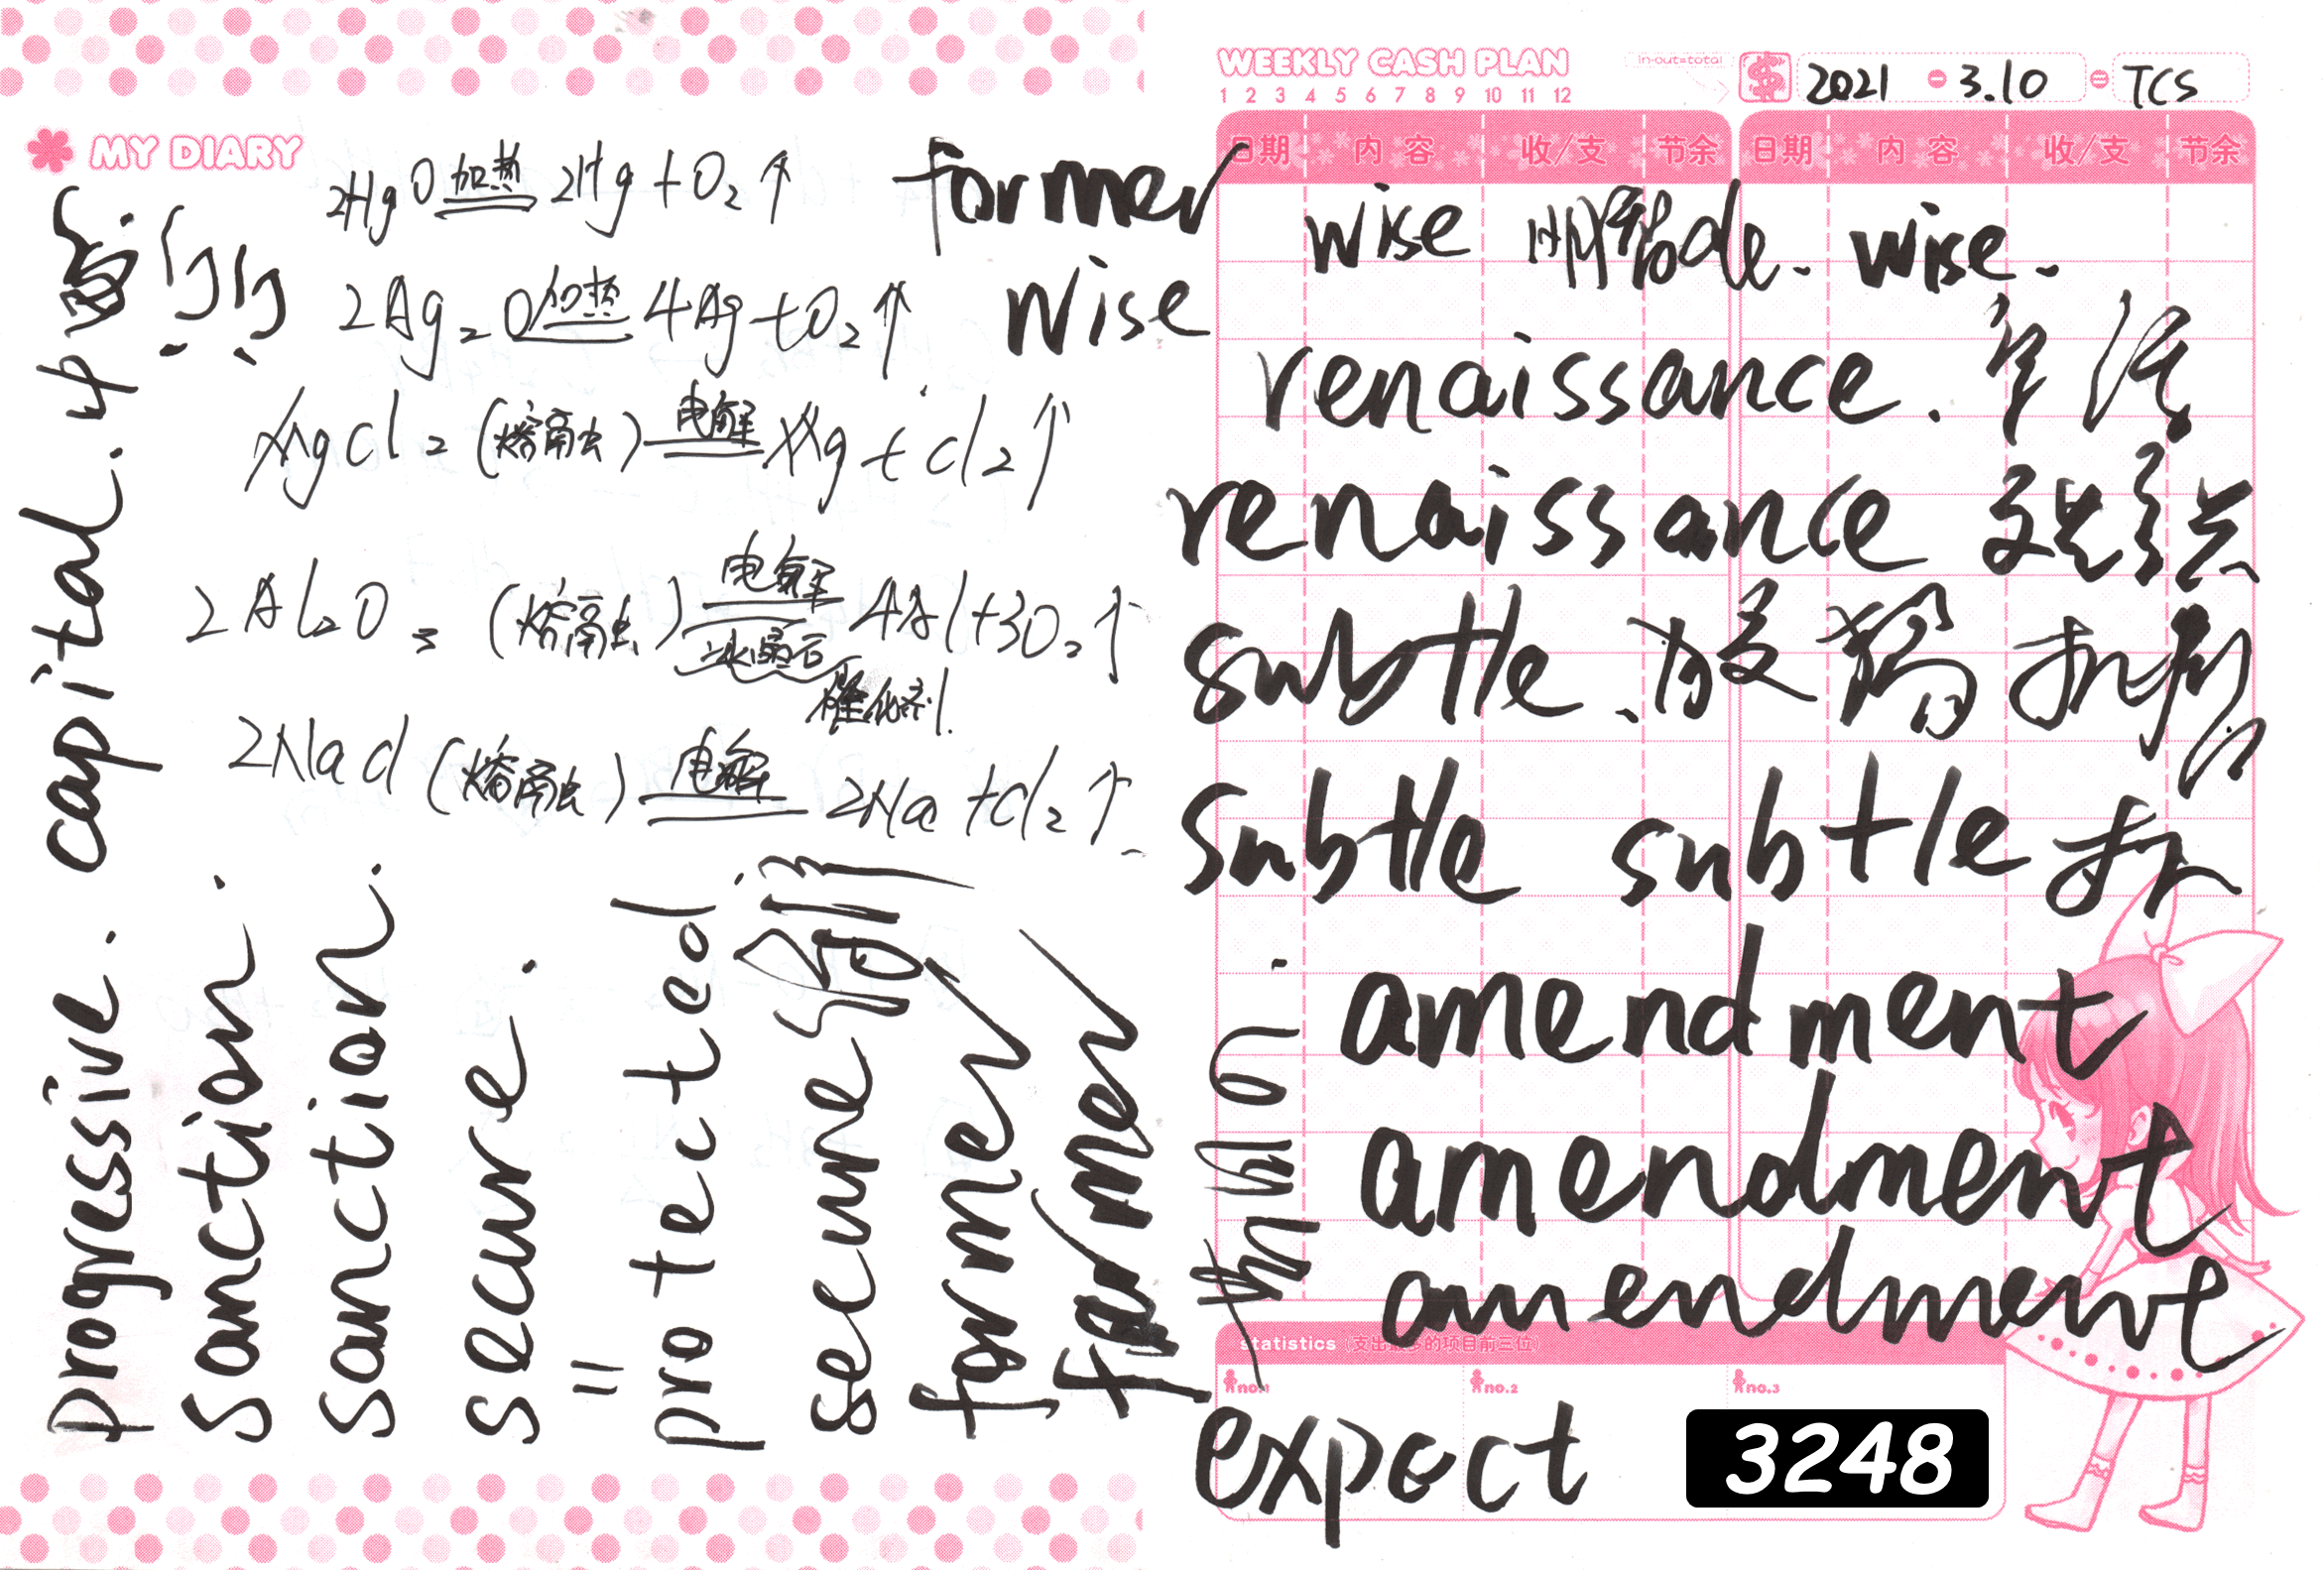 MY DIARY
2HgO 加热 2Hg + O₂↑
2Ag₂O 加热 4Ag + O₂↑
MgCl₂ (熔融) 电解 Mg + Cl₂↑
2Al₂O₃ (熔融) 电解 冰晶石 4Al + 3O₂↑
催化剂
2NaCl (熔融) 电解 2Na + Cl₂↑
capital.
progressive.
sanction.
sanction.
secure.
=
protected
secure
former
former
former
wise
WEEKLY CASH PLAN
1 2 3 4 5 6 7 8 9 10 11 12
in-out=total
$ 2021 - 3.10 = TCS
日期 内容 收/支 节余 日期 内容 收/支 节余
wise 明智de. wise.
renaissance.
renaissance
subtle.
subtle subtle
amendment
amendment
amendment
statistics (支出最多的项目前三位)
no.1 no.2 no.3
expect
3248